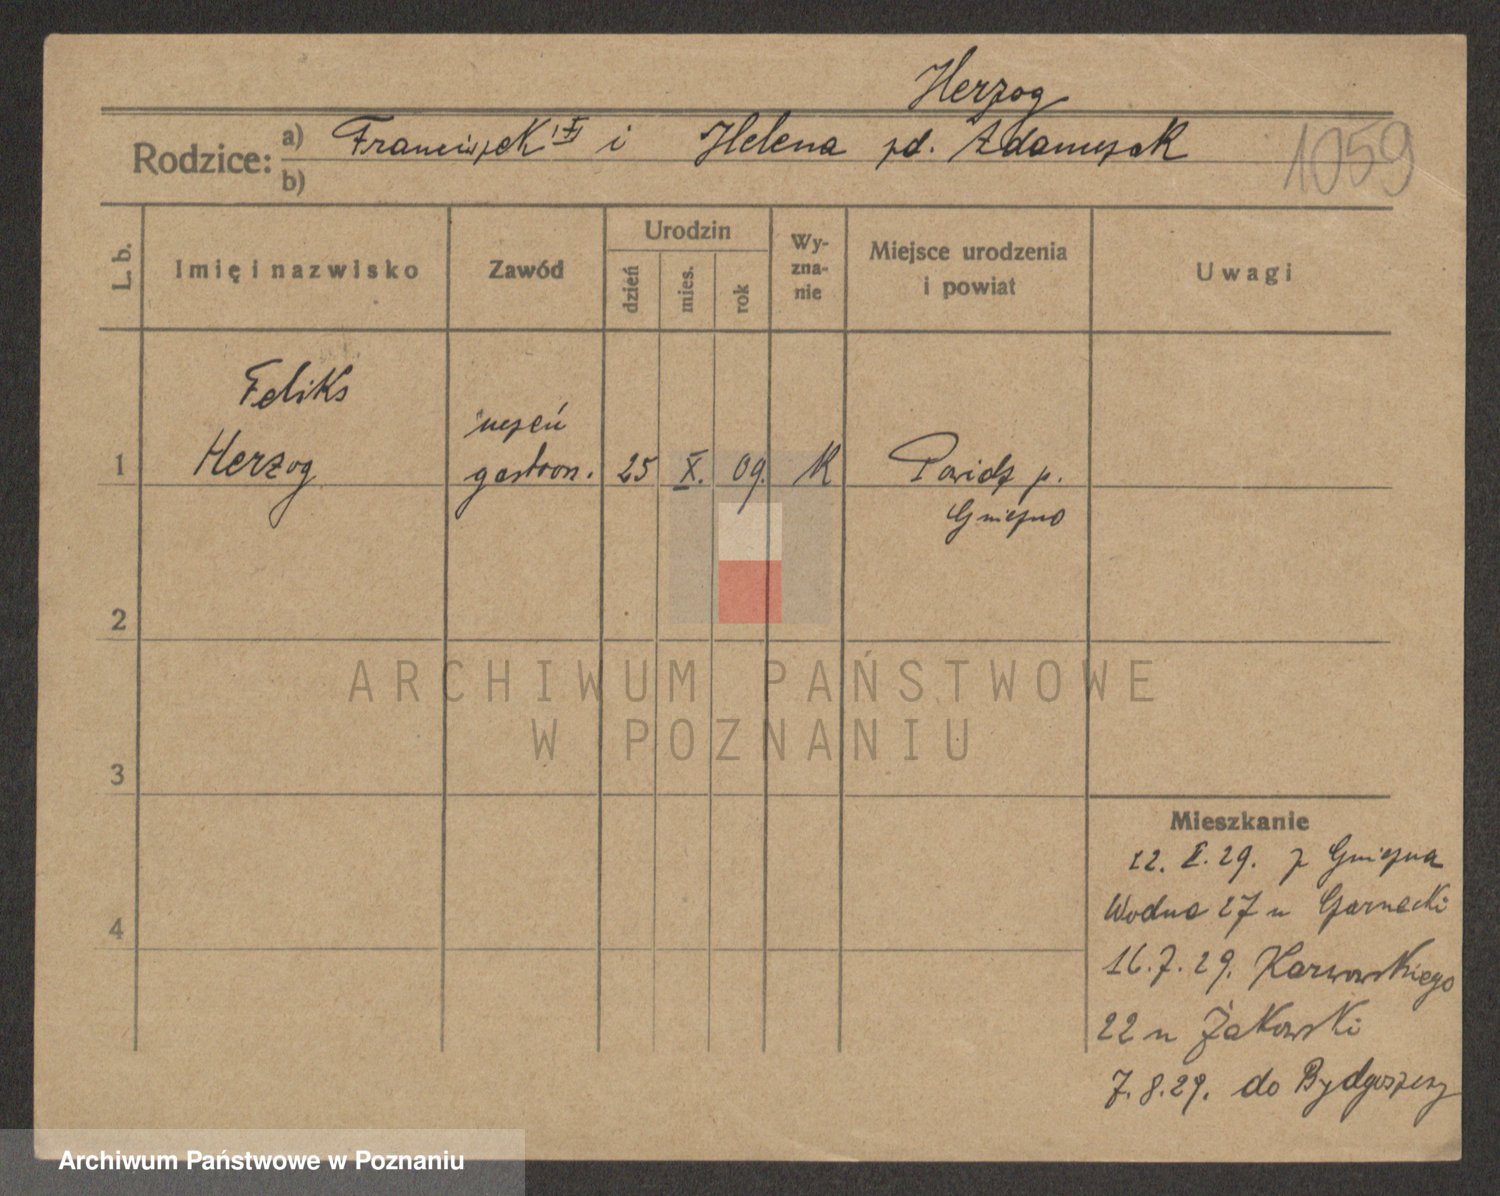 Herzog
Rodzice: a) Franciszek i Helena zd. Adamczak
b)
1059
L. b.
Imię i nazwisko
Zawód
Urodzin
dzień
mies.
rok
Wy-
zna-
nie
Miejsce urodzenia
i powiat
Uwagi
Feliks
uczeń
1 Herzog gastron. 25 X. 09. K Powidz p.
Gniezno
2
ARCHIWUM PAŃSTWOWE
W POZNANIU
3
Mieszkanie
12. X. 29. z Gniezna
4
Wodna 27 u Czarnecki
16.7.29. Karwowskiego
22 u Żakowski
7.8.29. do Bydgoszczy
Archiwum Państwowe w Poznaniu